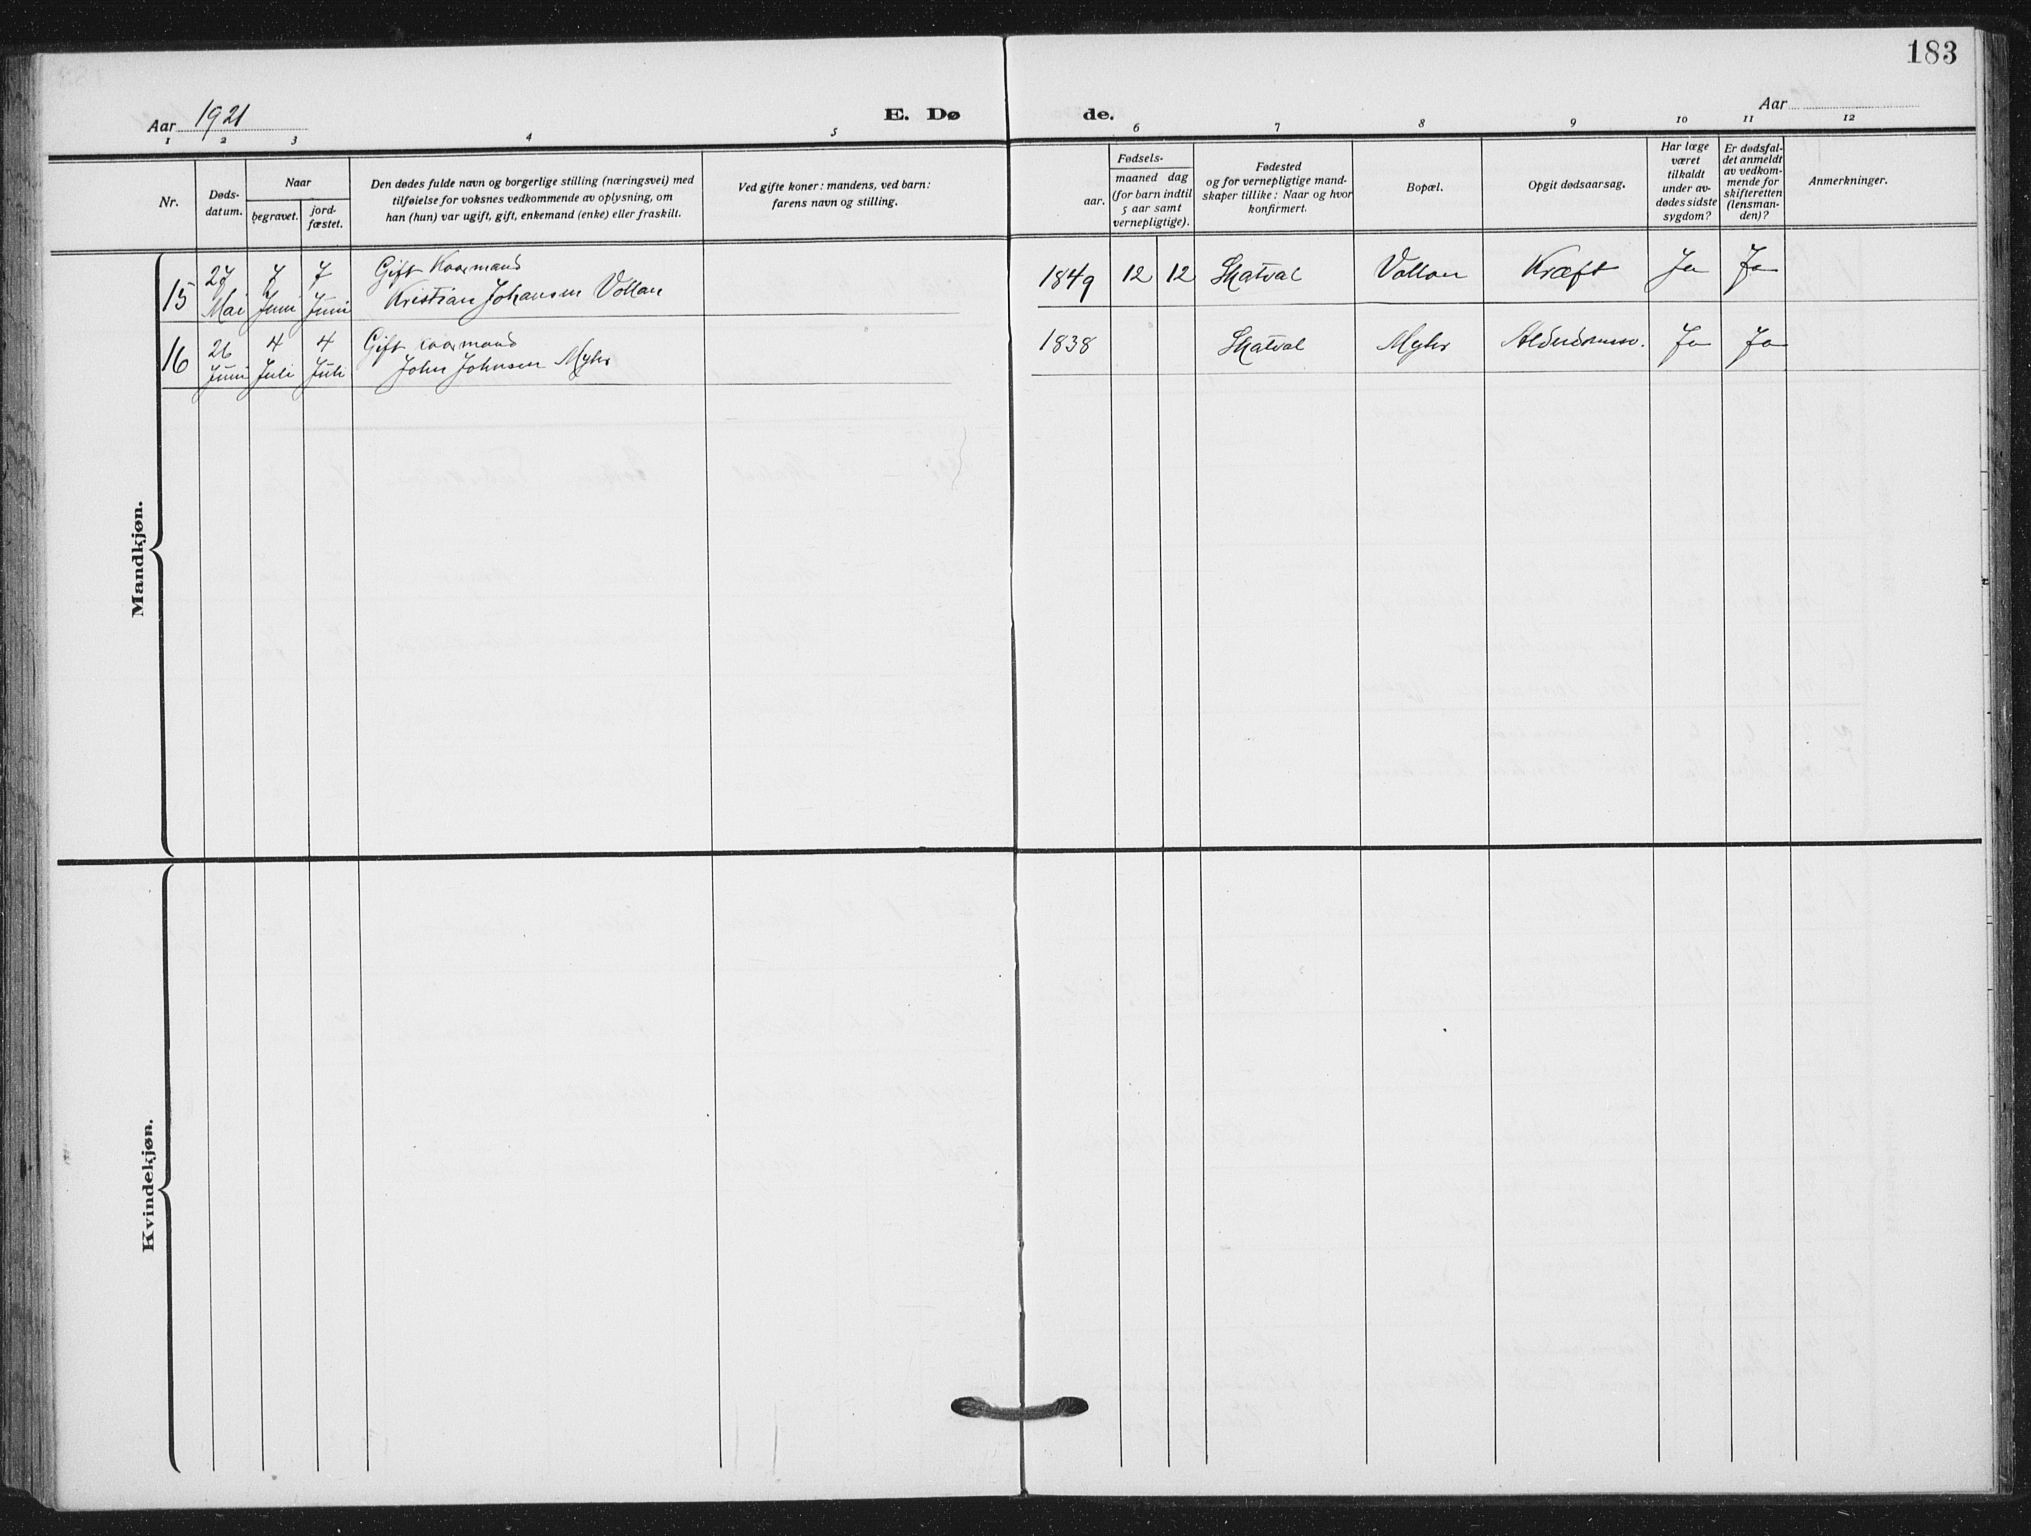 183
Aar 1921
E. Dø
de.
Aar
1 2 3 4 5 6 7 8 9 10 11 12
Nr.
Døds-
datum.
Naar
begravet.
jord-
fæstet.
Den dødes fulde navn og borgerlige stilling (næringsvei) med
tilføielse for voksnes vedkommende av oplysning, om
han (hun) var ugift, gift, enkemand (enke) eller fraskilt.
Ved gifte koner: mandens, ved barn:
farens navn og stilling.
Fødsels-
aar.
maaned dag
(for barn indtil
5 aar samt
vernepligtige).
Fødested
og for vernepligtige mand-
skaper tillike: Naar og hvor
konfirmert.
Bopæl.
Opgit dødsaarsag.
Har læge
været
tilkaldt
under av-
dødes sidste
sygdom?
Er dødsfal-
det anmeldt
av vedkom-
mende for
skifteretten
(lensman-
den)?
Anmerkninger.
Mandkjøn.
15 27 Mai 7 Juni 7 Juni Gift Kaarmand
Kristian Johansen Vollan 1849 12 12 Skatval Vollan Kræft Ja Ja
16 26 Juni 4 Juli 4 Juli Gift kaarmand
John Johnsen Myhr 1838 Skatval Myhr Ja Ja
Kvindekjøn.